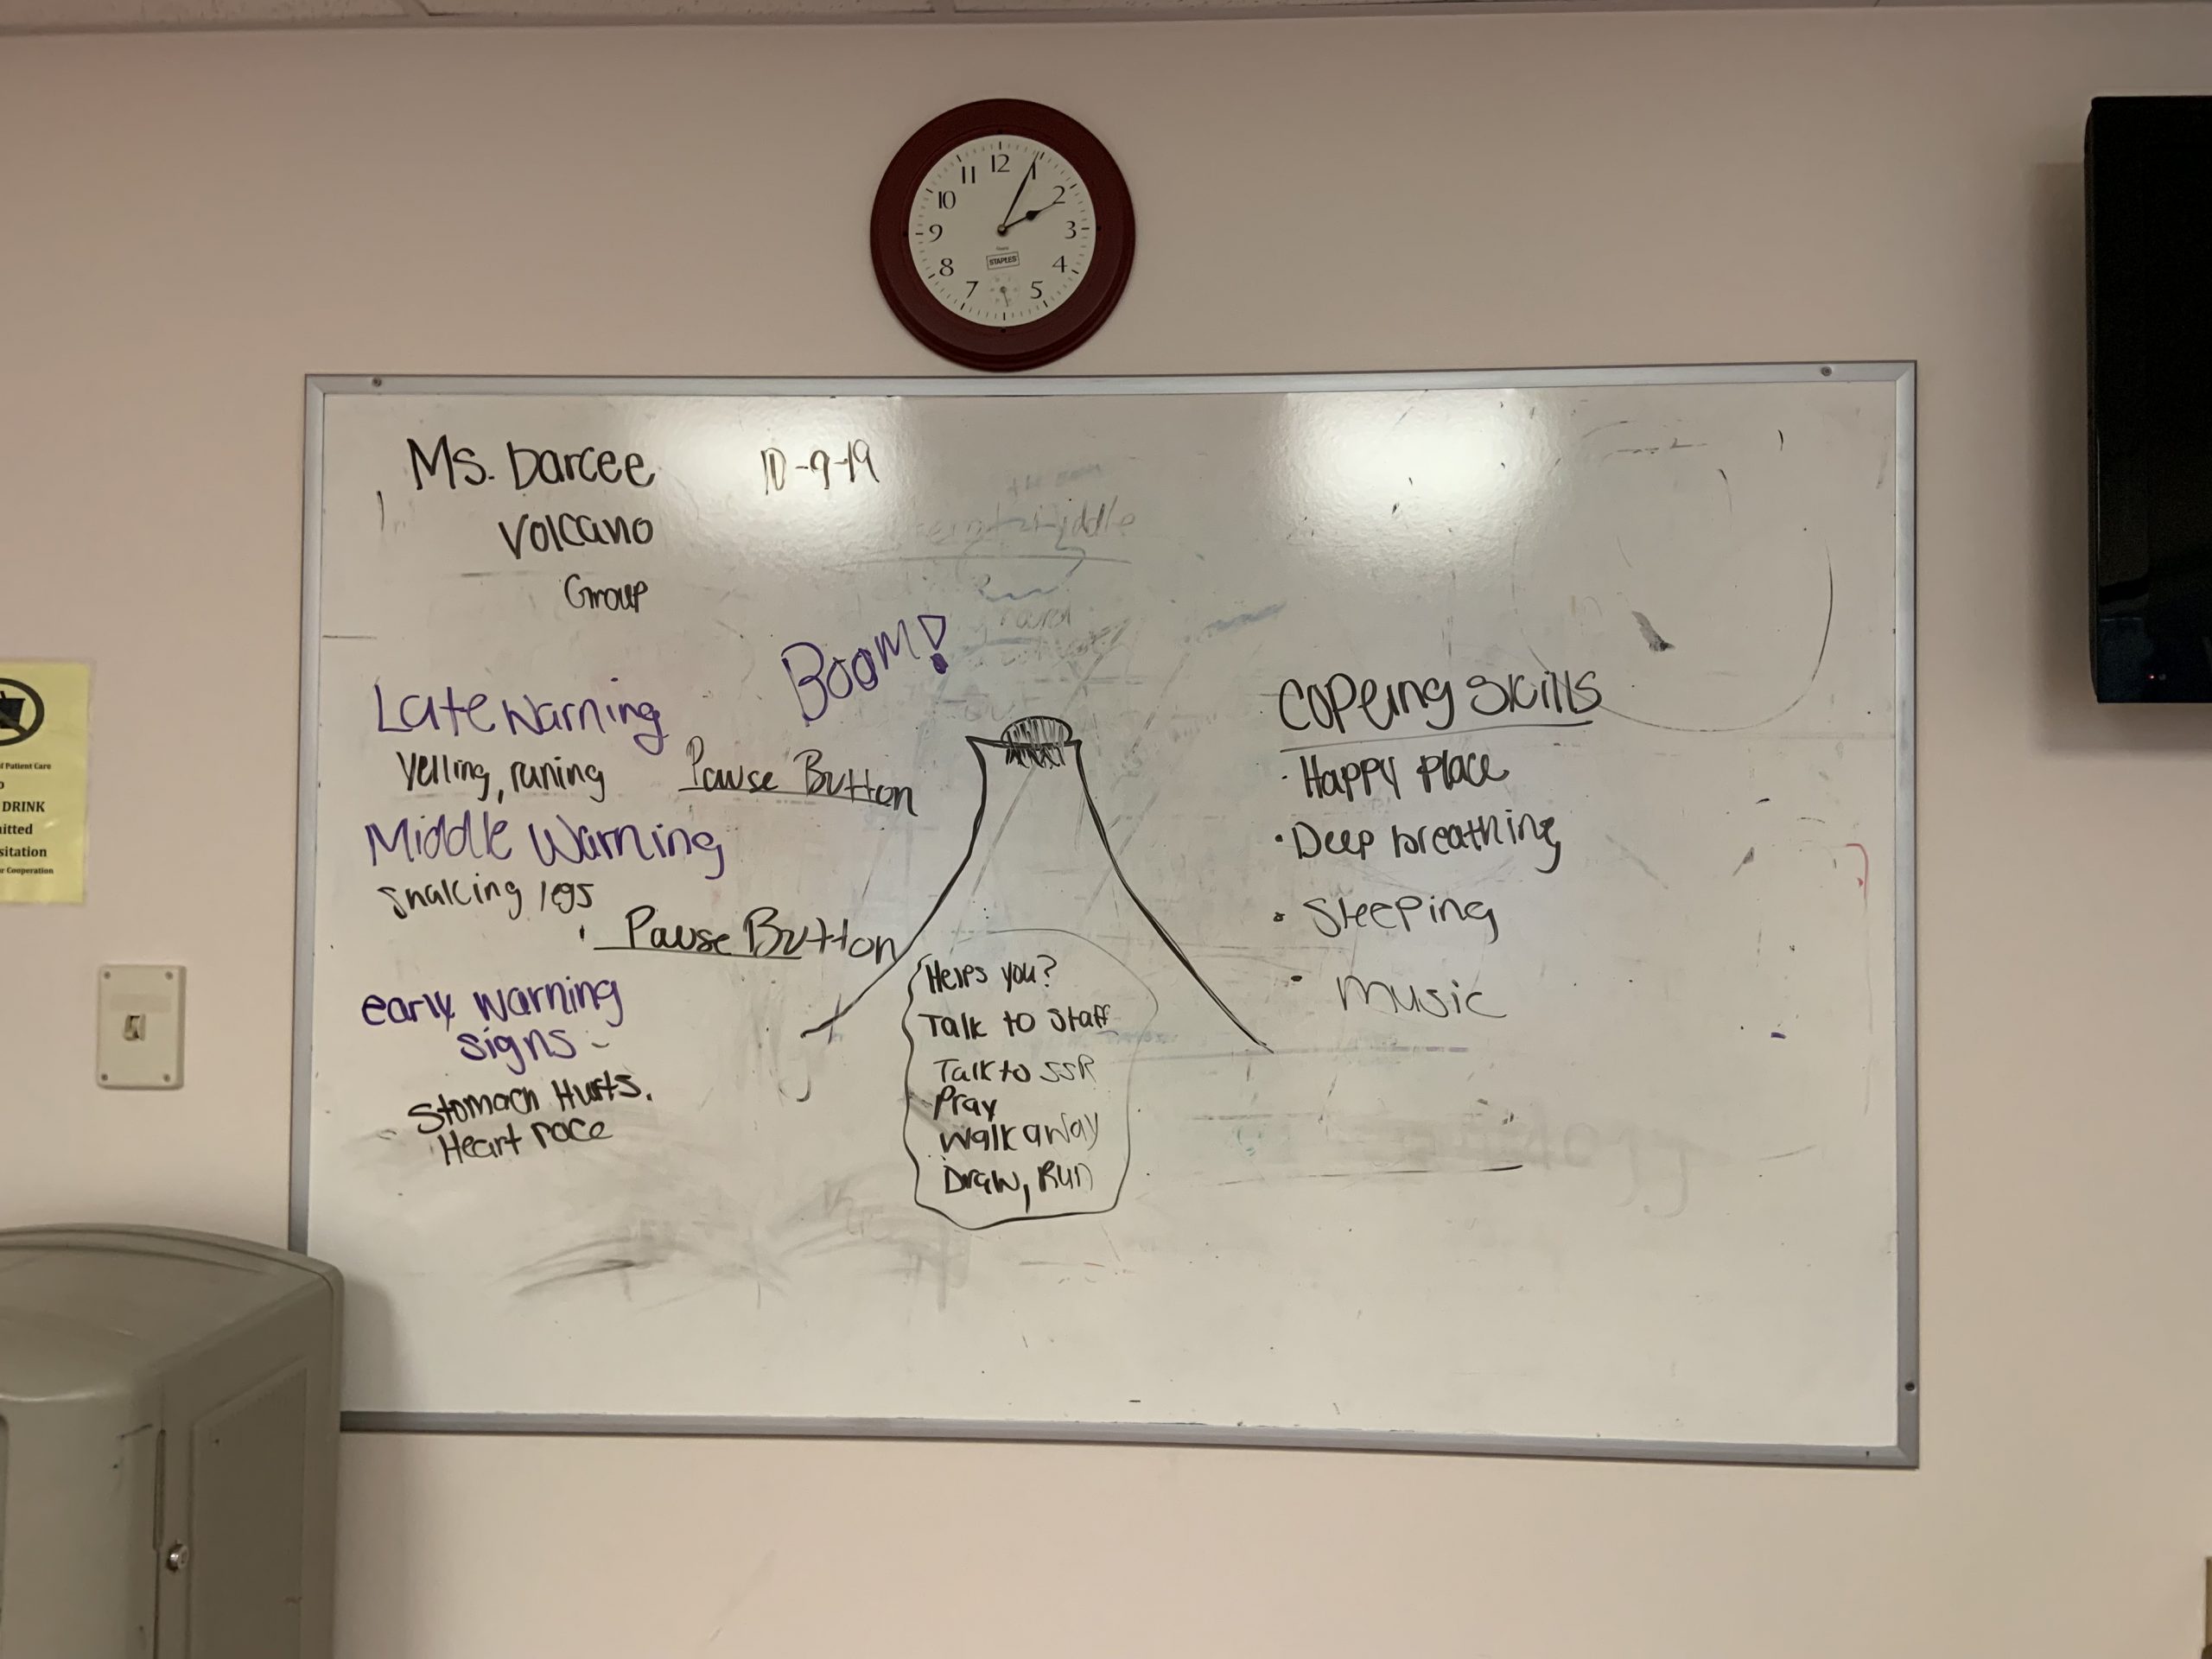 12
11
1
10
2
9
3
8
4
7
5
STAPLES
Ms. Darcee 10-9-19
Volcano
Group
BOOM!
Late Warning
Yelling, runing
Pause Button
Middle Warning
Shaking legs
Pause Button
early warning
signs -
Stomach Hurts.
Heart race
Helps you?
Talk to Staff
Talk to SSR
Pray
Walk away
Draw, Run
Copeing Skills
· Happy place
· Deep breathing
· Sleeping
· music
f Patient Care
DRINK
itted
sitation
r Cooperation